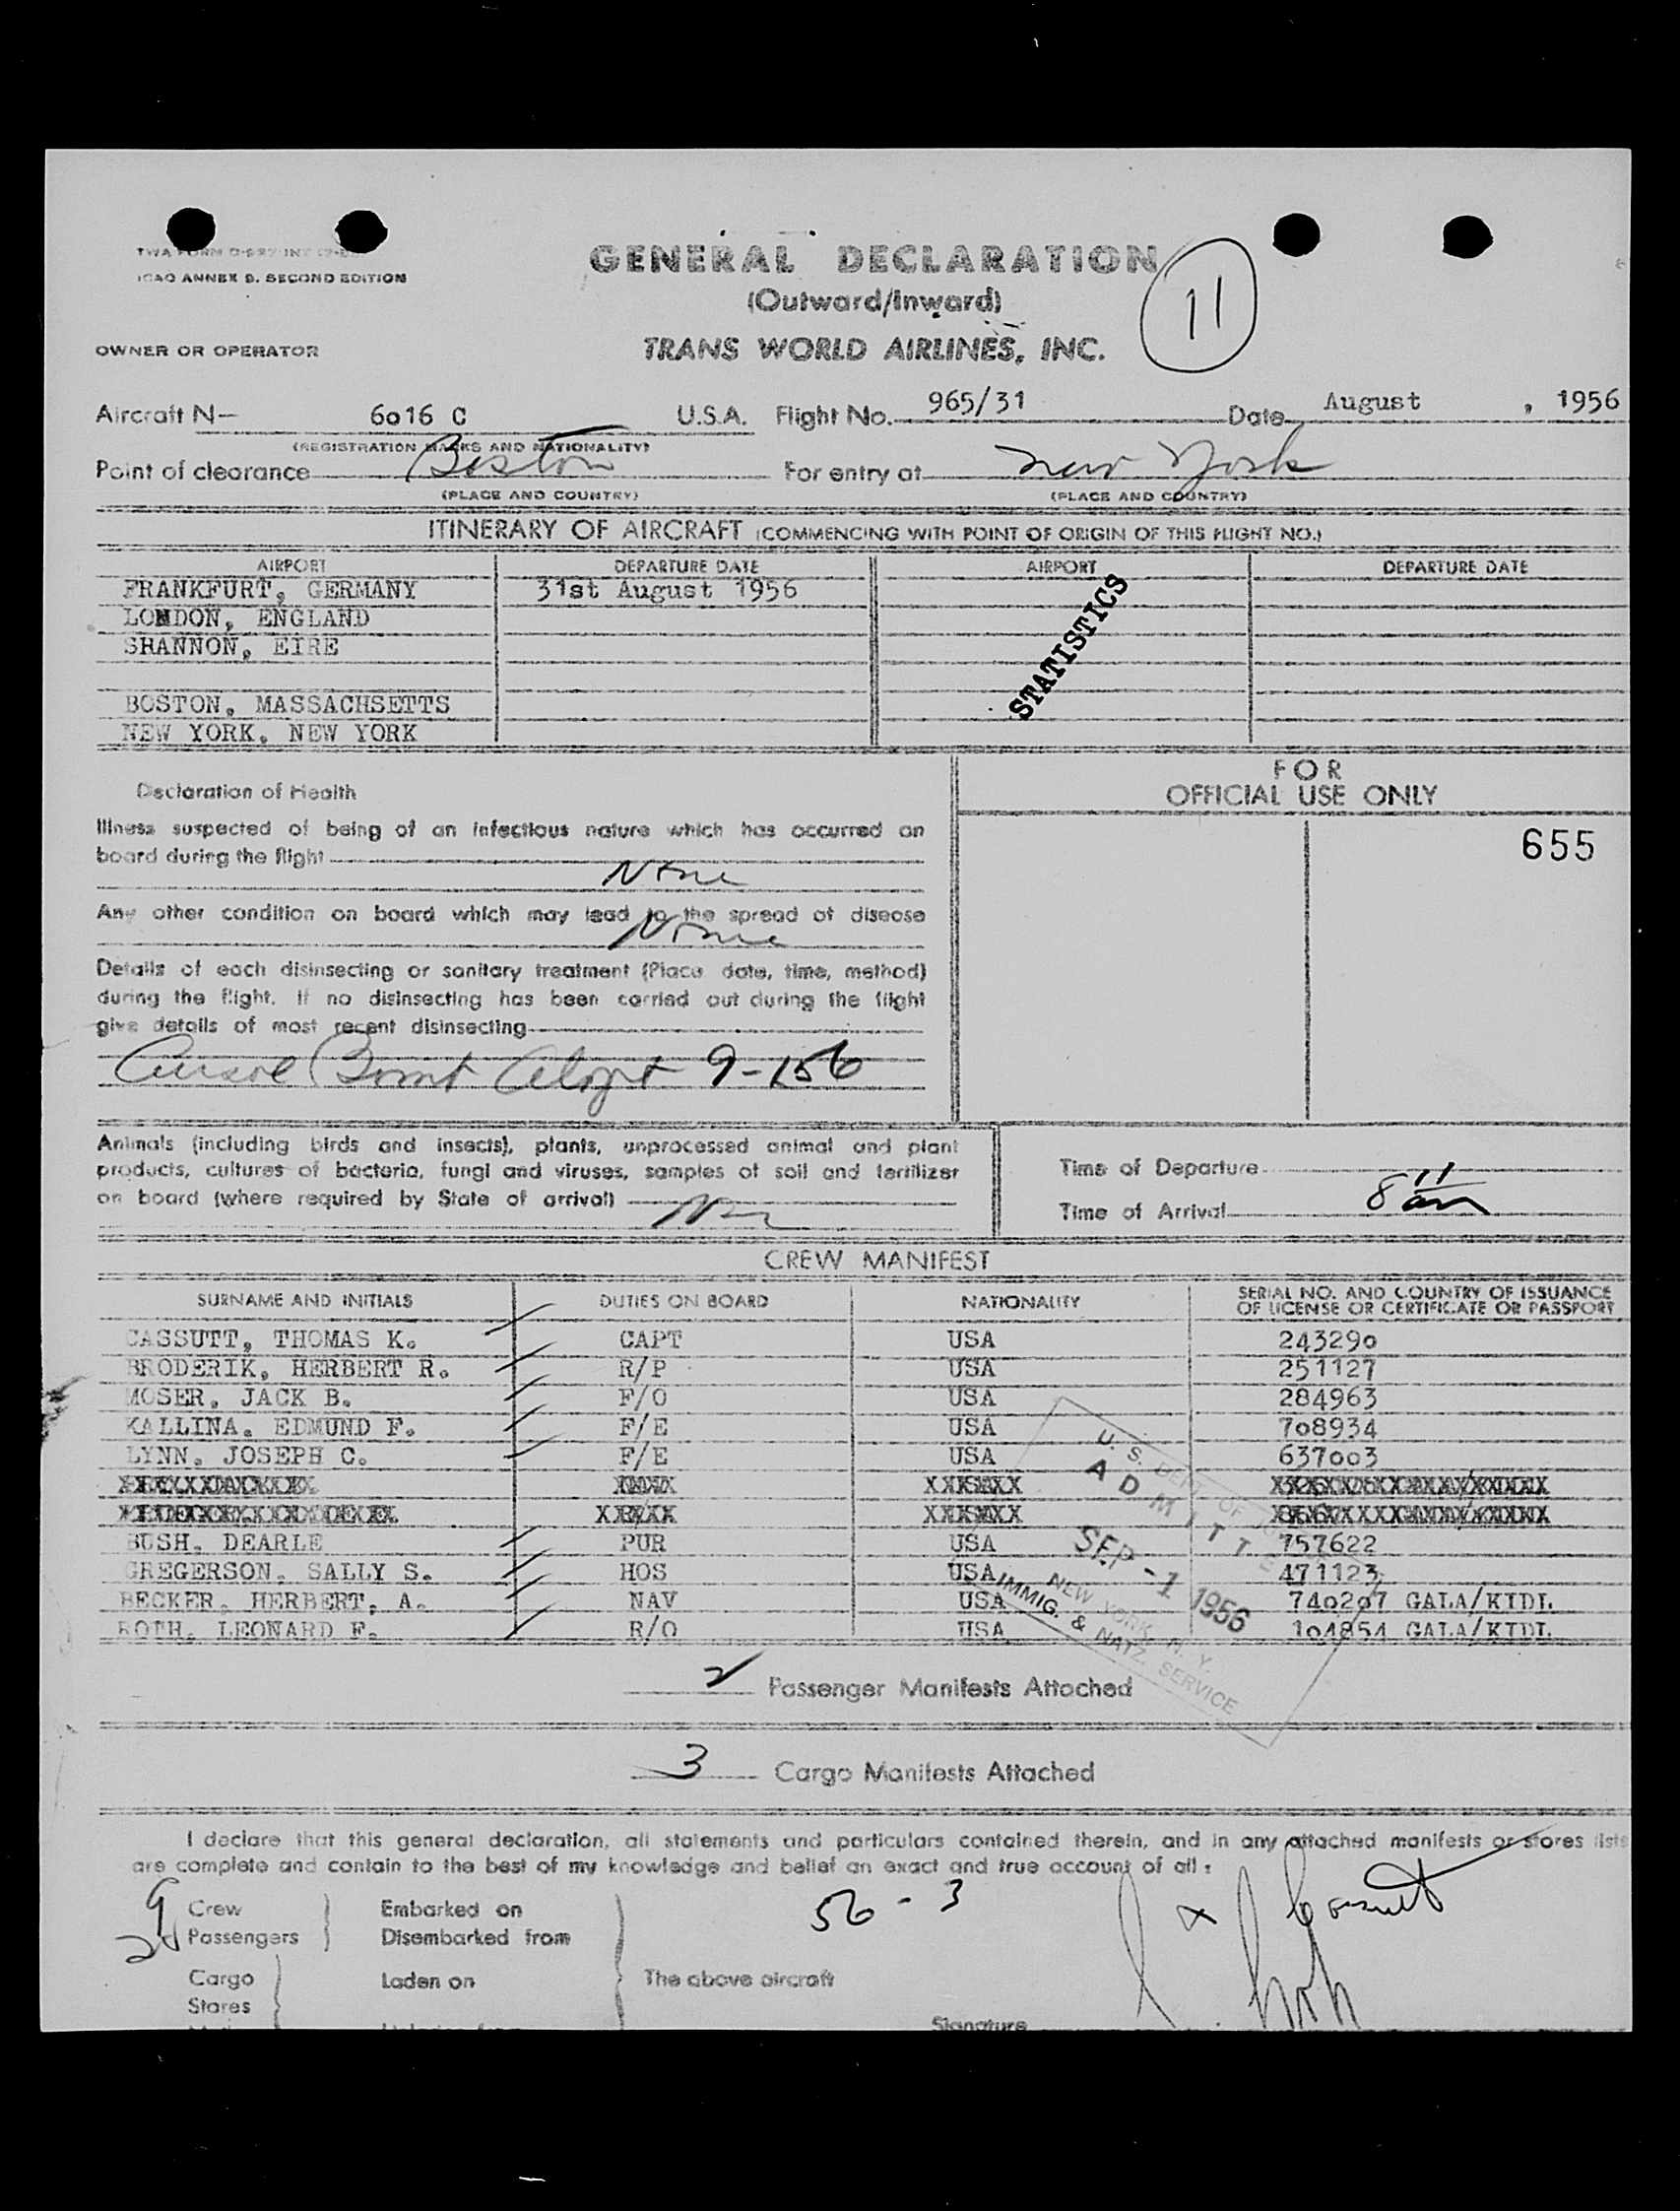 ICAO ANNEX 9. SECOND EDITION
GENERAL DECLARATION
(Outward/Inward)
11
OWNER OR OPERATOR
TRANS WORLD AIRLINES, INC.
Aircraft N- 6o16 C U.S.A. Flight No. 965/31 Date August , 1956
(REGISTRATION MARKS AND NATIONALITY)
Point of clearance Boston For entry at New York
(PLACE AND COUNTRY) (PLACE AND COUNTRY)
ITINERARY OF AIRCRAFT (COMMENCING WITH POINT OF ORIGIN OF THIS FLIGHT NO.)
AIRPORT DEPARTURE DATE AIRPORT DEPARTURE DATE
FRANKFURT, GERMANY 31st August 1956
LONDON, ENGLAND
SHANNON, EIRE
BOSTON, MASSACHSETTS
NEW YORK, NEW YORK
STATISTICS
Declaration of Health
FOR
OFFICIAL USE ONLY
655
Illness suspected of being of an infectious nature which has occurred on
board during the flight
None
Any other condition on board which may lead to the spread of disease
None
Details of each disinsecting or sanitary treatment (Place date, time, method)
during the flight. If no disinsecting has been carried out during the flight
give details of most recent disinsecting
Bomb 9-156
Animals (including birds and insects), plants, unprocessed animal and plant
products, cultures of bacteria, fungi and viruses, samples of soil and fertilizer
on board (where required by State of arrival)
Time of Departure
Time of Arrival 8 11 am
CREW MANIFEST
SURNAME AND INITIALS DUTIES ON BOARD NATIONALITY SERIAL NO. AND COUNTRY OF ISSUANCE
OF LICENSE OR CERTIFICATE OR PASSPORT
CASSUTT, THOMAS K. CAPT USA 24329o
BRODERIK, HERBERT R. R/P USA 251127
MOSER, JACK B. F/O USA 284963
KALLINA, EDMUND F. F/E USA 7o8934
LYNN, JOSEPH C. F/E USA 637oo3
BUSH, DEARLE PUR USA 757622
GREGERSON, SALLY S. HOS USA 471123
BECKER, HERBERT, A. NAV USA 74o2o7 GALA/KIDL
ROTH, LEONARD F. R/O USA 1o4854 GALA/KIDL
U. S. DEPT. OF
ADMITTED
SEP -1 1956
NEW YORK, N. Y.
IMMIG. & NATZ. SERVICE
2 Passenger Manifests Attached
3 Cargo Manifests Attached
I declare that this general declaration, all statements and particulars contained therein, and in any attached manifests or stores lists
are complete and contain to the best of my knowledge and belief an exact and true account of all :
9 Crew Embarked on 56 - 3
Passengers Disembarked from
Cargo Laden on The above aircraft
Stores
Signature